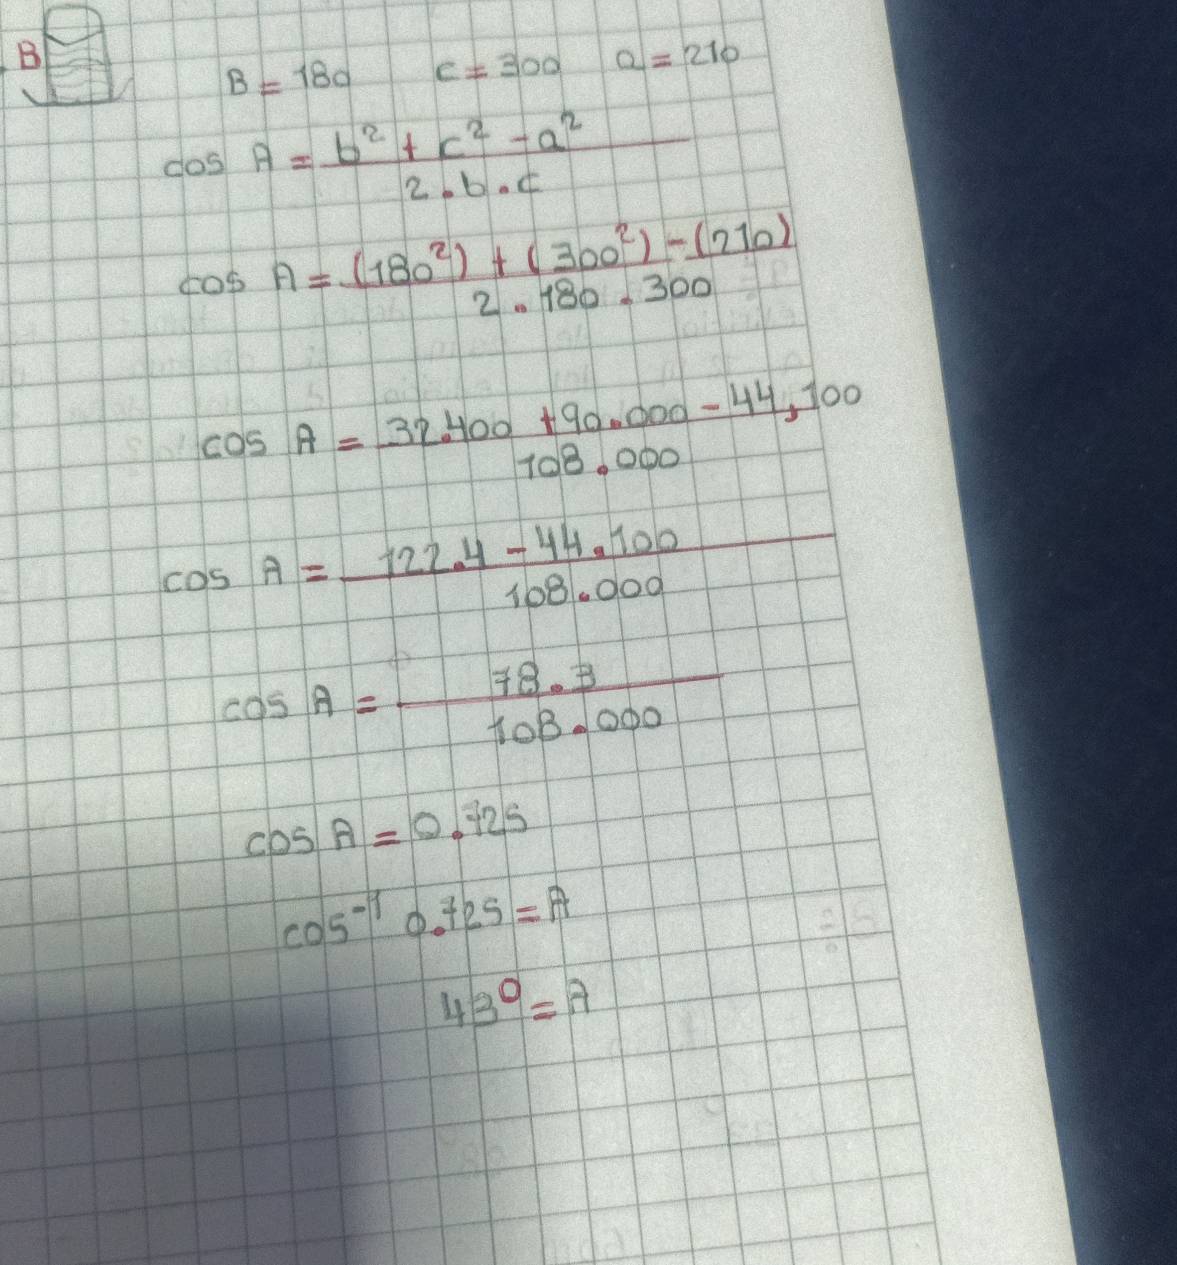 B
B = 180 c = 300 a = 210
cos A = b² + c² - a²
2 . b . c
cos A = (180²) + (300²) - (210)
2 . 180 . 300
cos A = 32.400 + 90.000 - 44,100
108.000
cos A = 122.4 - 44.100
108.000
cos A = 78.3
108.000
cos A = 0.725
cos⁻¹ 0.725 = A
43° = A